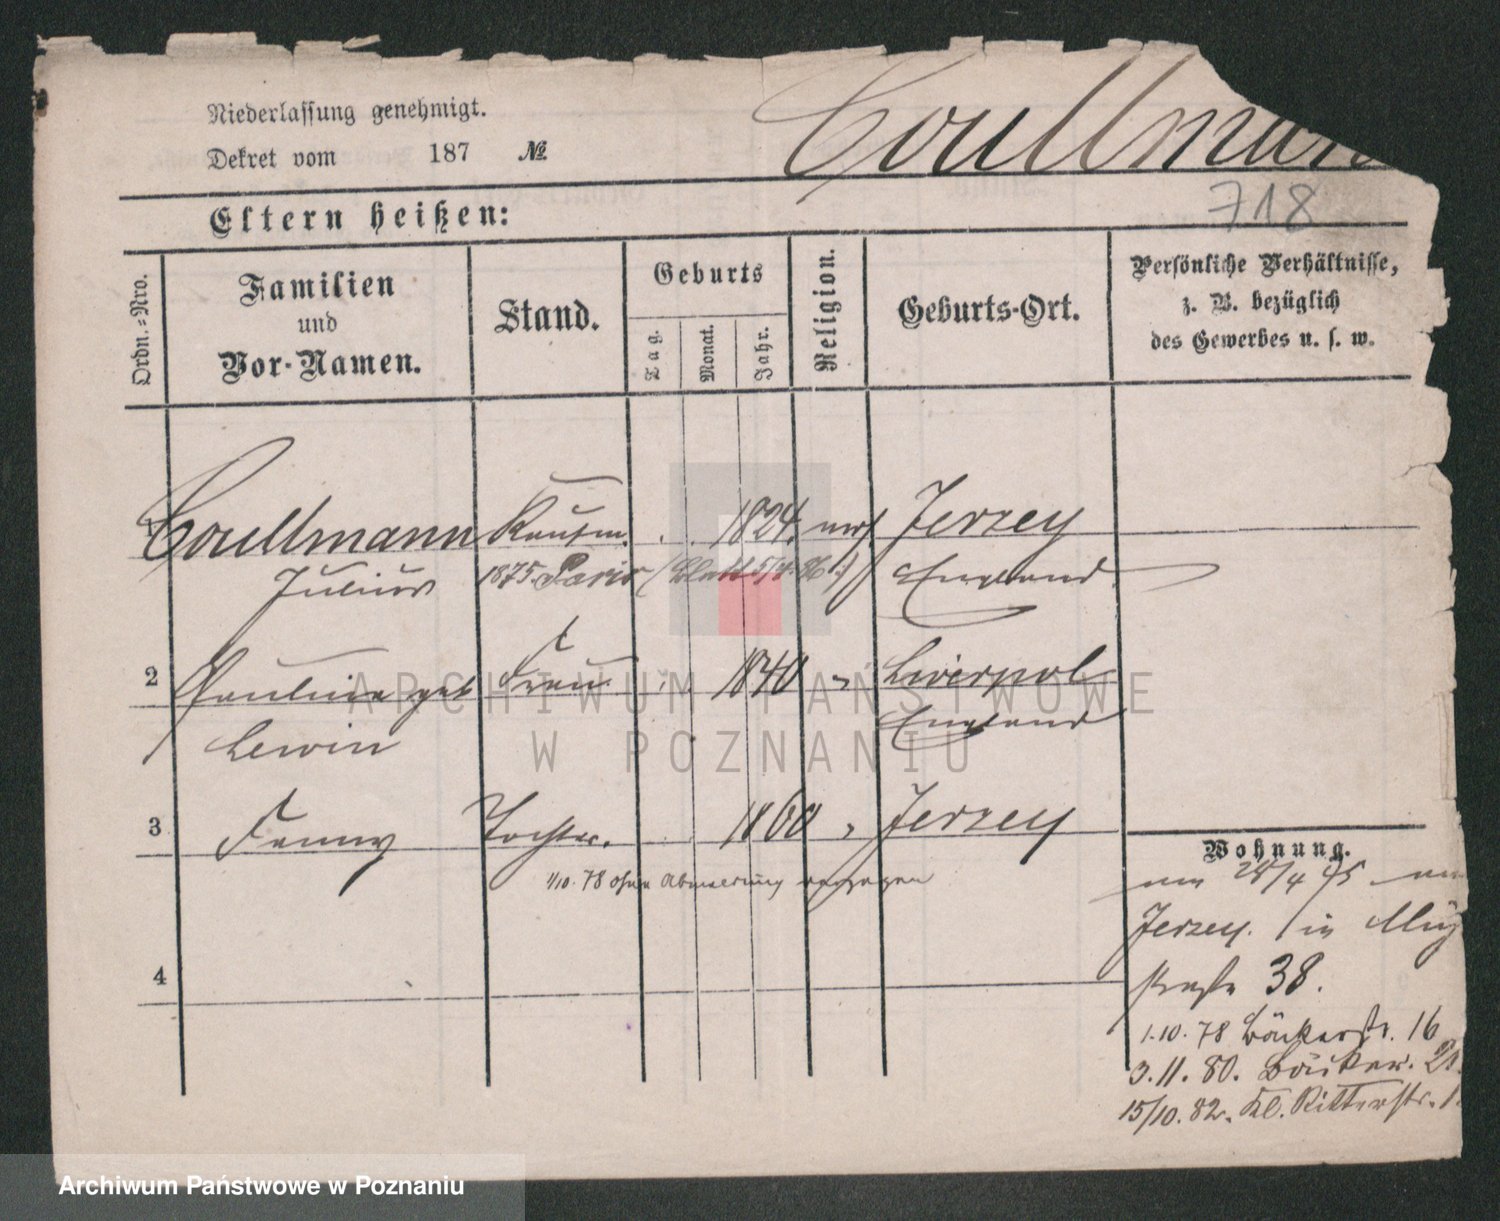 Niederlassung genehmigt.
Dekret vom 187 №
Coullmann
718
Eltern heißen:
Ordn.=Nro.
Familien
und
Vor-Namen.
Stand.
Geburts
Tag.
Monat.
Jahr.
Religion.
Geburts-Ort.
Persönliche Verhältnisse,
z. B. bezüglich
des Gewerbes u. s. w.
Coullmann Kaufm. 1824. Jerzey
Julius 1875 Paris England
2 Pauline geb Frau 1840 " Liverpol
Lewin England
3 Fanny Tochter. 1860 " Jerzey
1/10. 78 ohne Abmeldung
4
Wohnung.
Jerzey. in
straße 38.
1.10. 78 Bäckerstr. 16
3.11. 80. Bäcker.
15/10. 82. Kl. Ritterstr.
ARCHIWUM PAŃSTWOWE
W POZNANIU
Archiwum Państwowe w Poznaniu